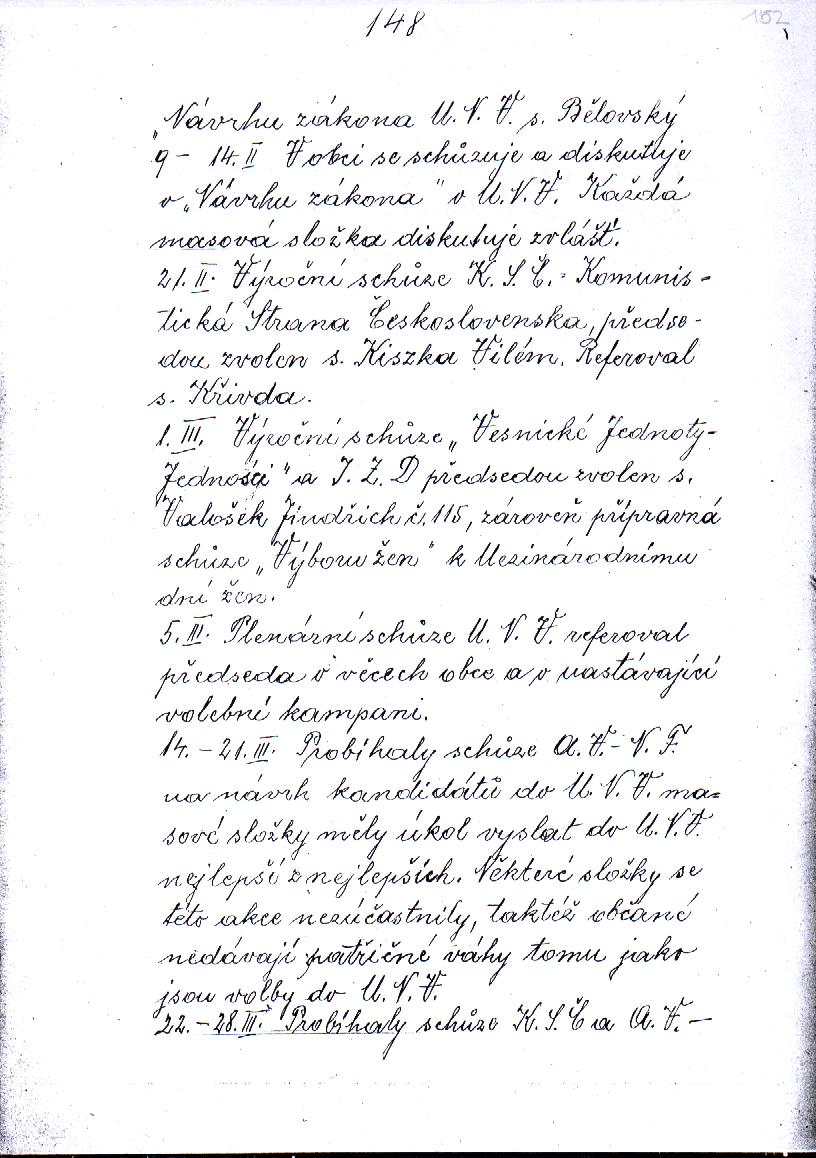 148
152
„Návrhu zákona M. N. V. s. Bělovský
9 – 14. II V obci se schůzuje a diskutuje
o „Návrhu zákona" o M. N. V. Každá
masová složka diskutuje zvlášť.
21. II. Výroční schůze K. S. Č. = Komunis-
tická Strana Československa, předse-
dou zvolen s. Kiszka Vilém. Referoval
s. Křivda.
1. III. Výroční schůze „Vesnické Jednoty-
Jednošći" a J. Z. D předsedou zvolen s.
Valošek Jindřich č. 115, zároveň přípravná
schůze „Výboru žen" k Mezinárodnímu
dní žen.
5. III. Plenární schůze M. N. V. referoval
předseda o věcech obce a o nastávající
volební kampani.
14. – 21. III. Probíhaly schůze A. V. – N. F.
na návrh kandidátů do M. N. V. ma=
sové složky měly úkol vyslat do M. N. V.
nejlepší z nejlepších. Některé složky se
této akce nezúčastnily, taktéž občané
nedávají patřičné váhy tomu jako
jsou volby do M. N. V.
22. – 28. III. Probíhaly schůze K. S. Č a A. V. –